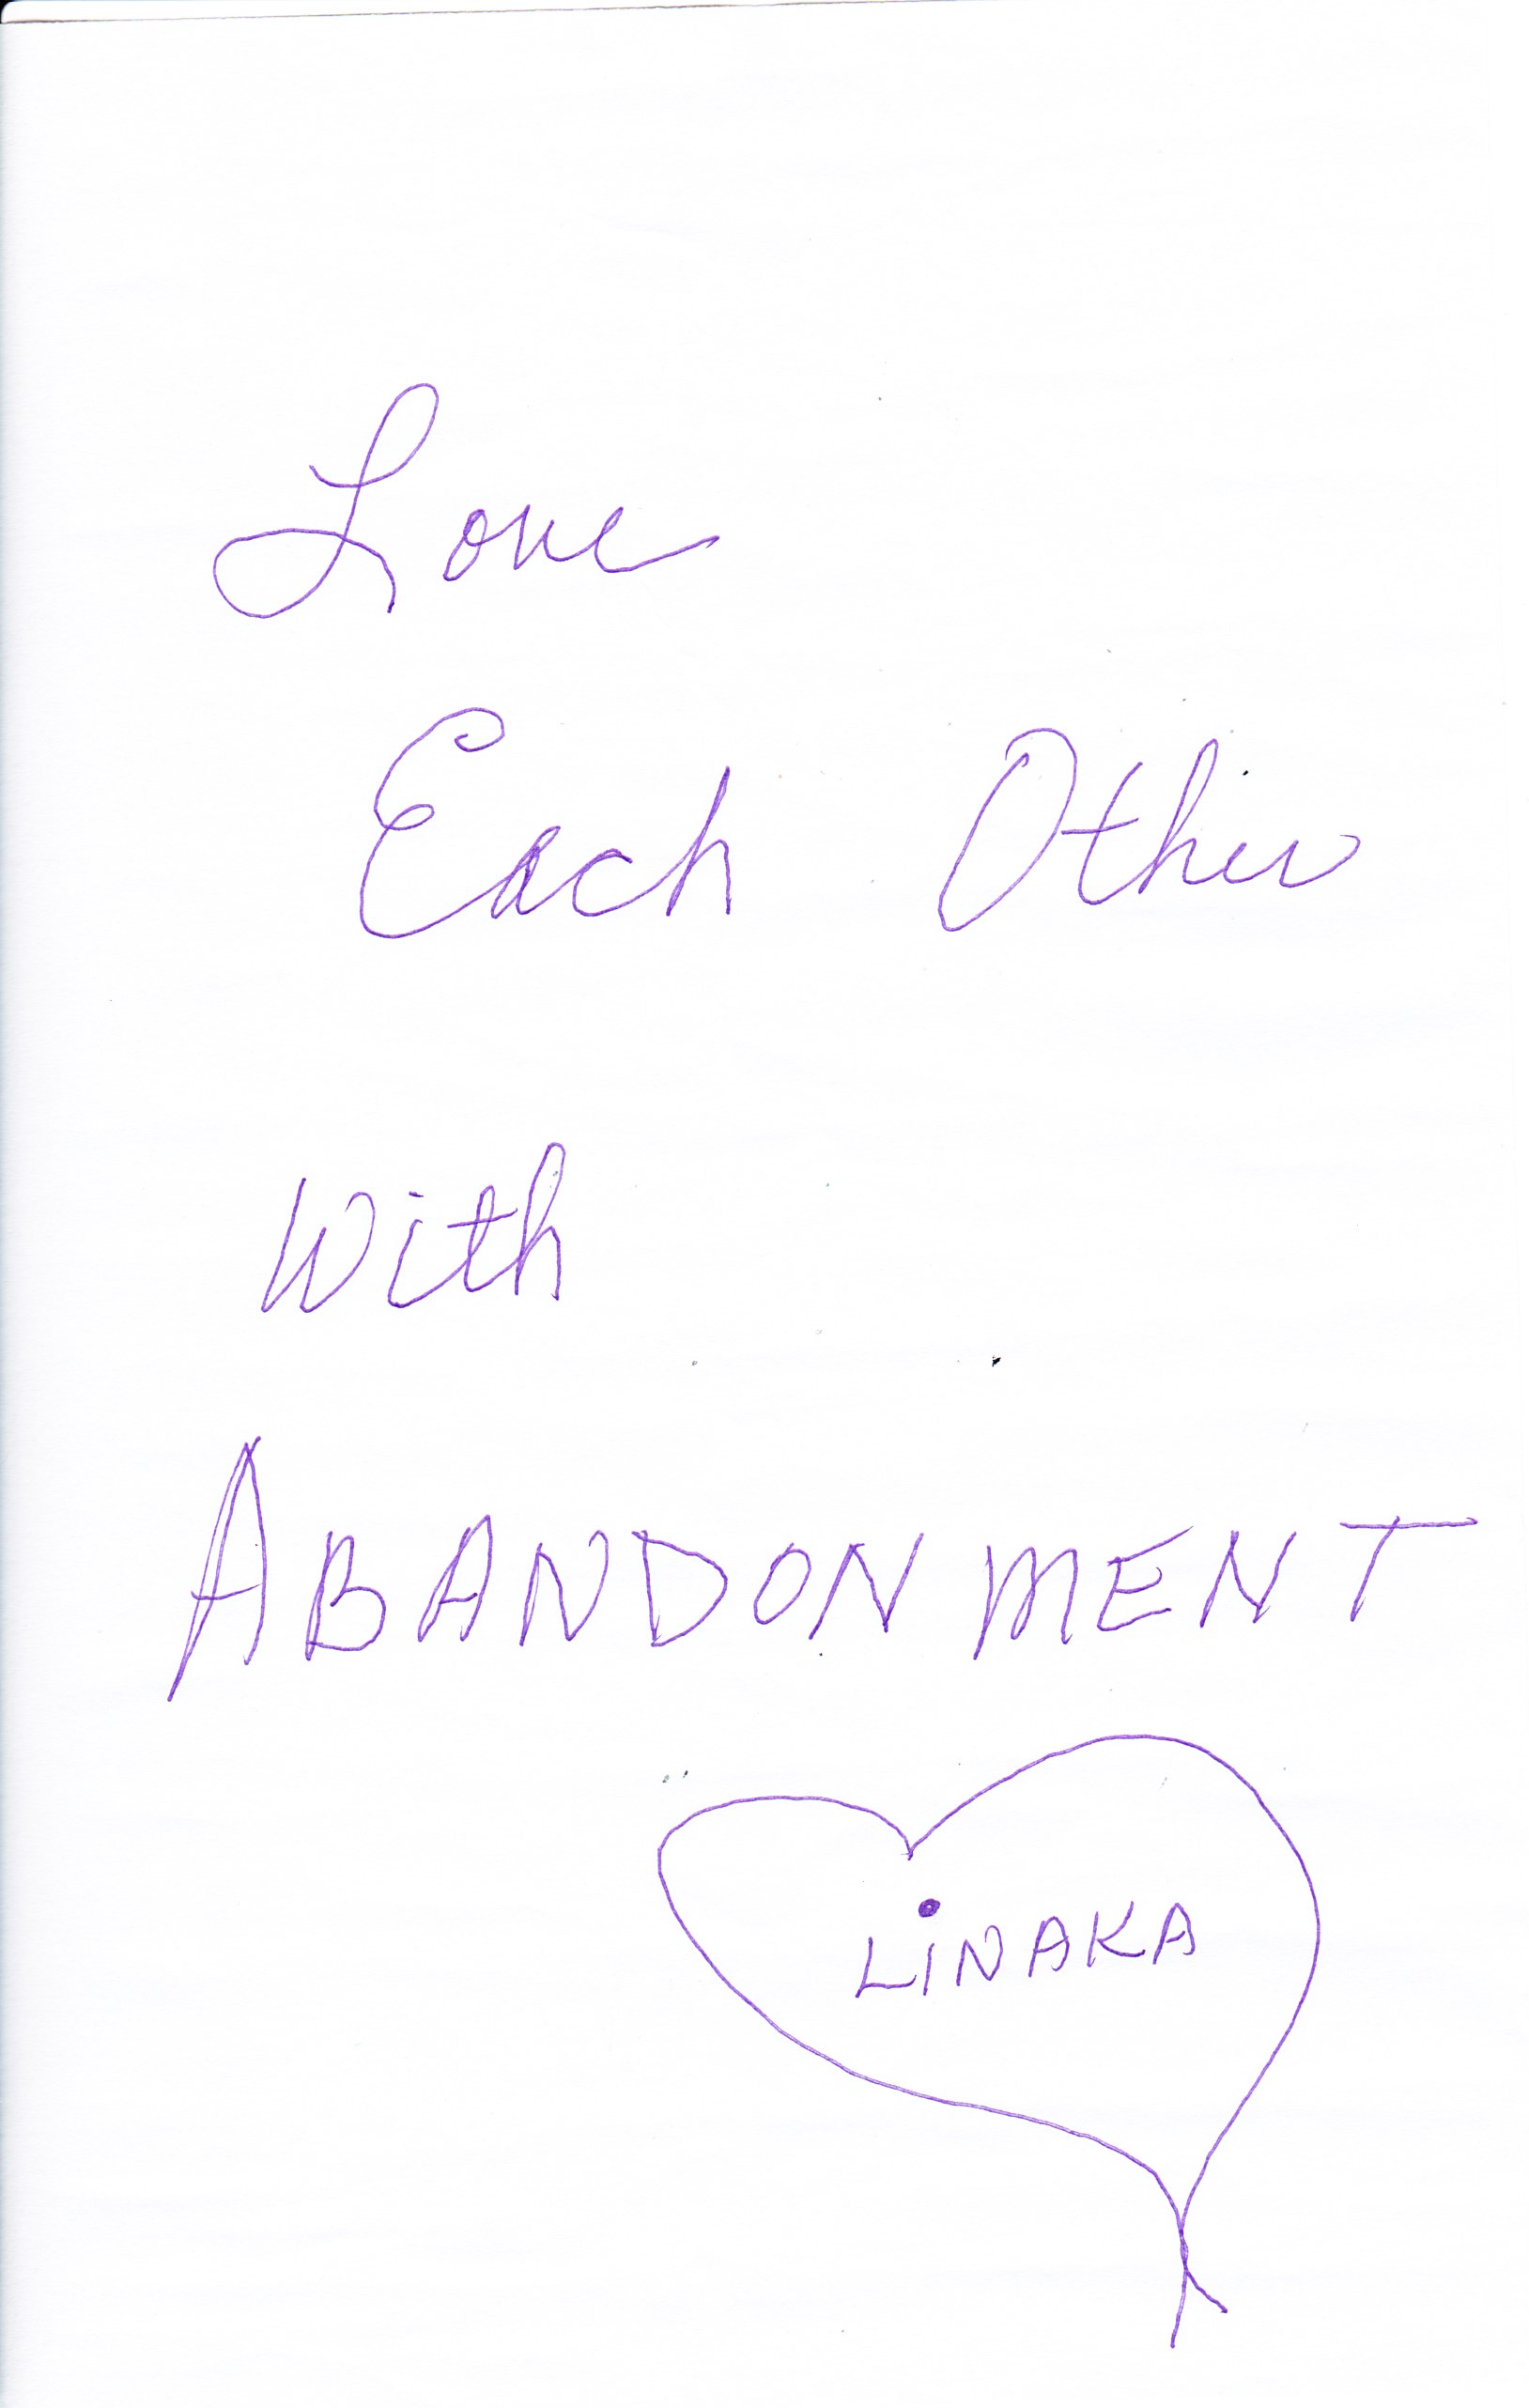 Love
Each Other
With
ABANDONMENT
LiNAKA